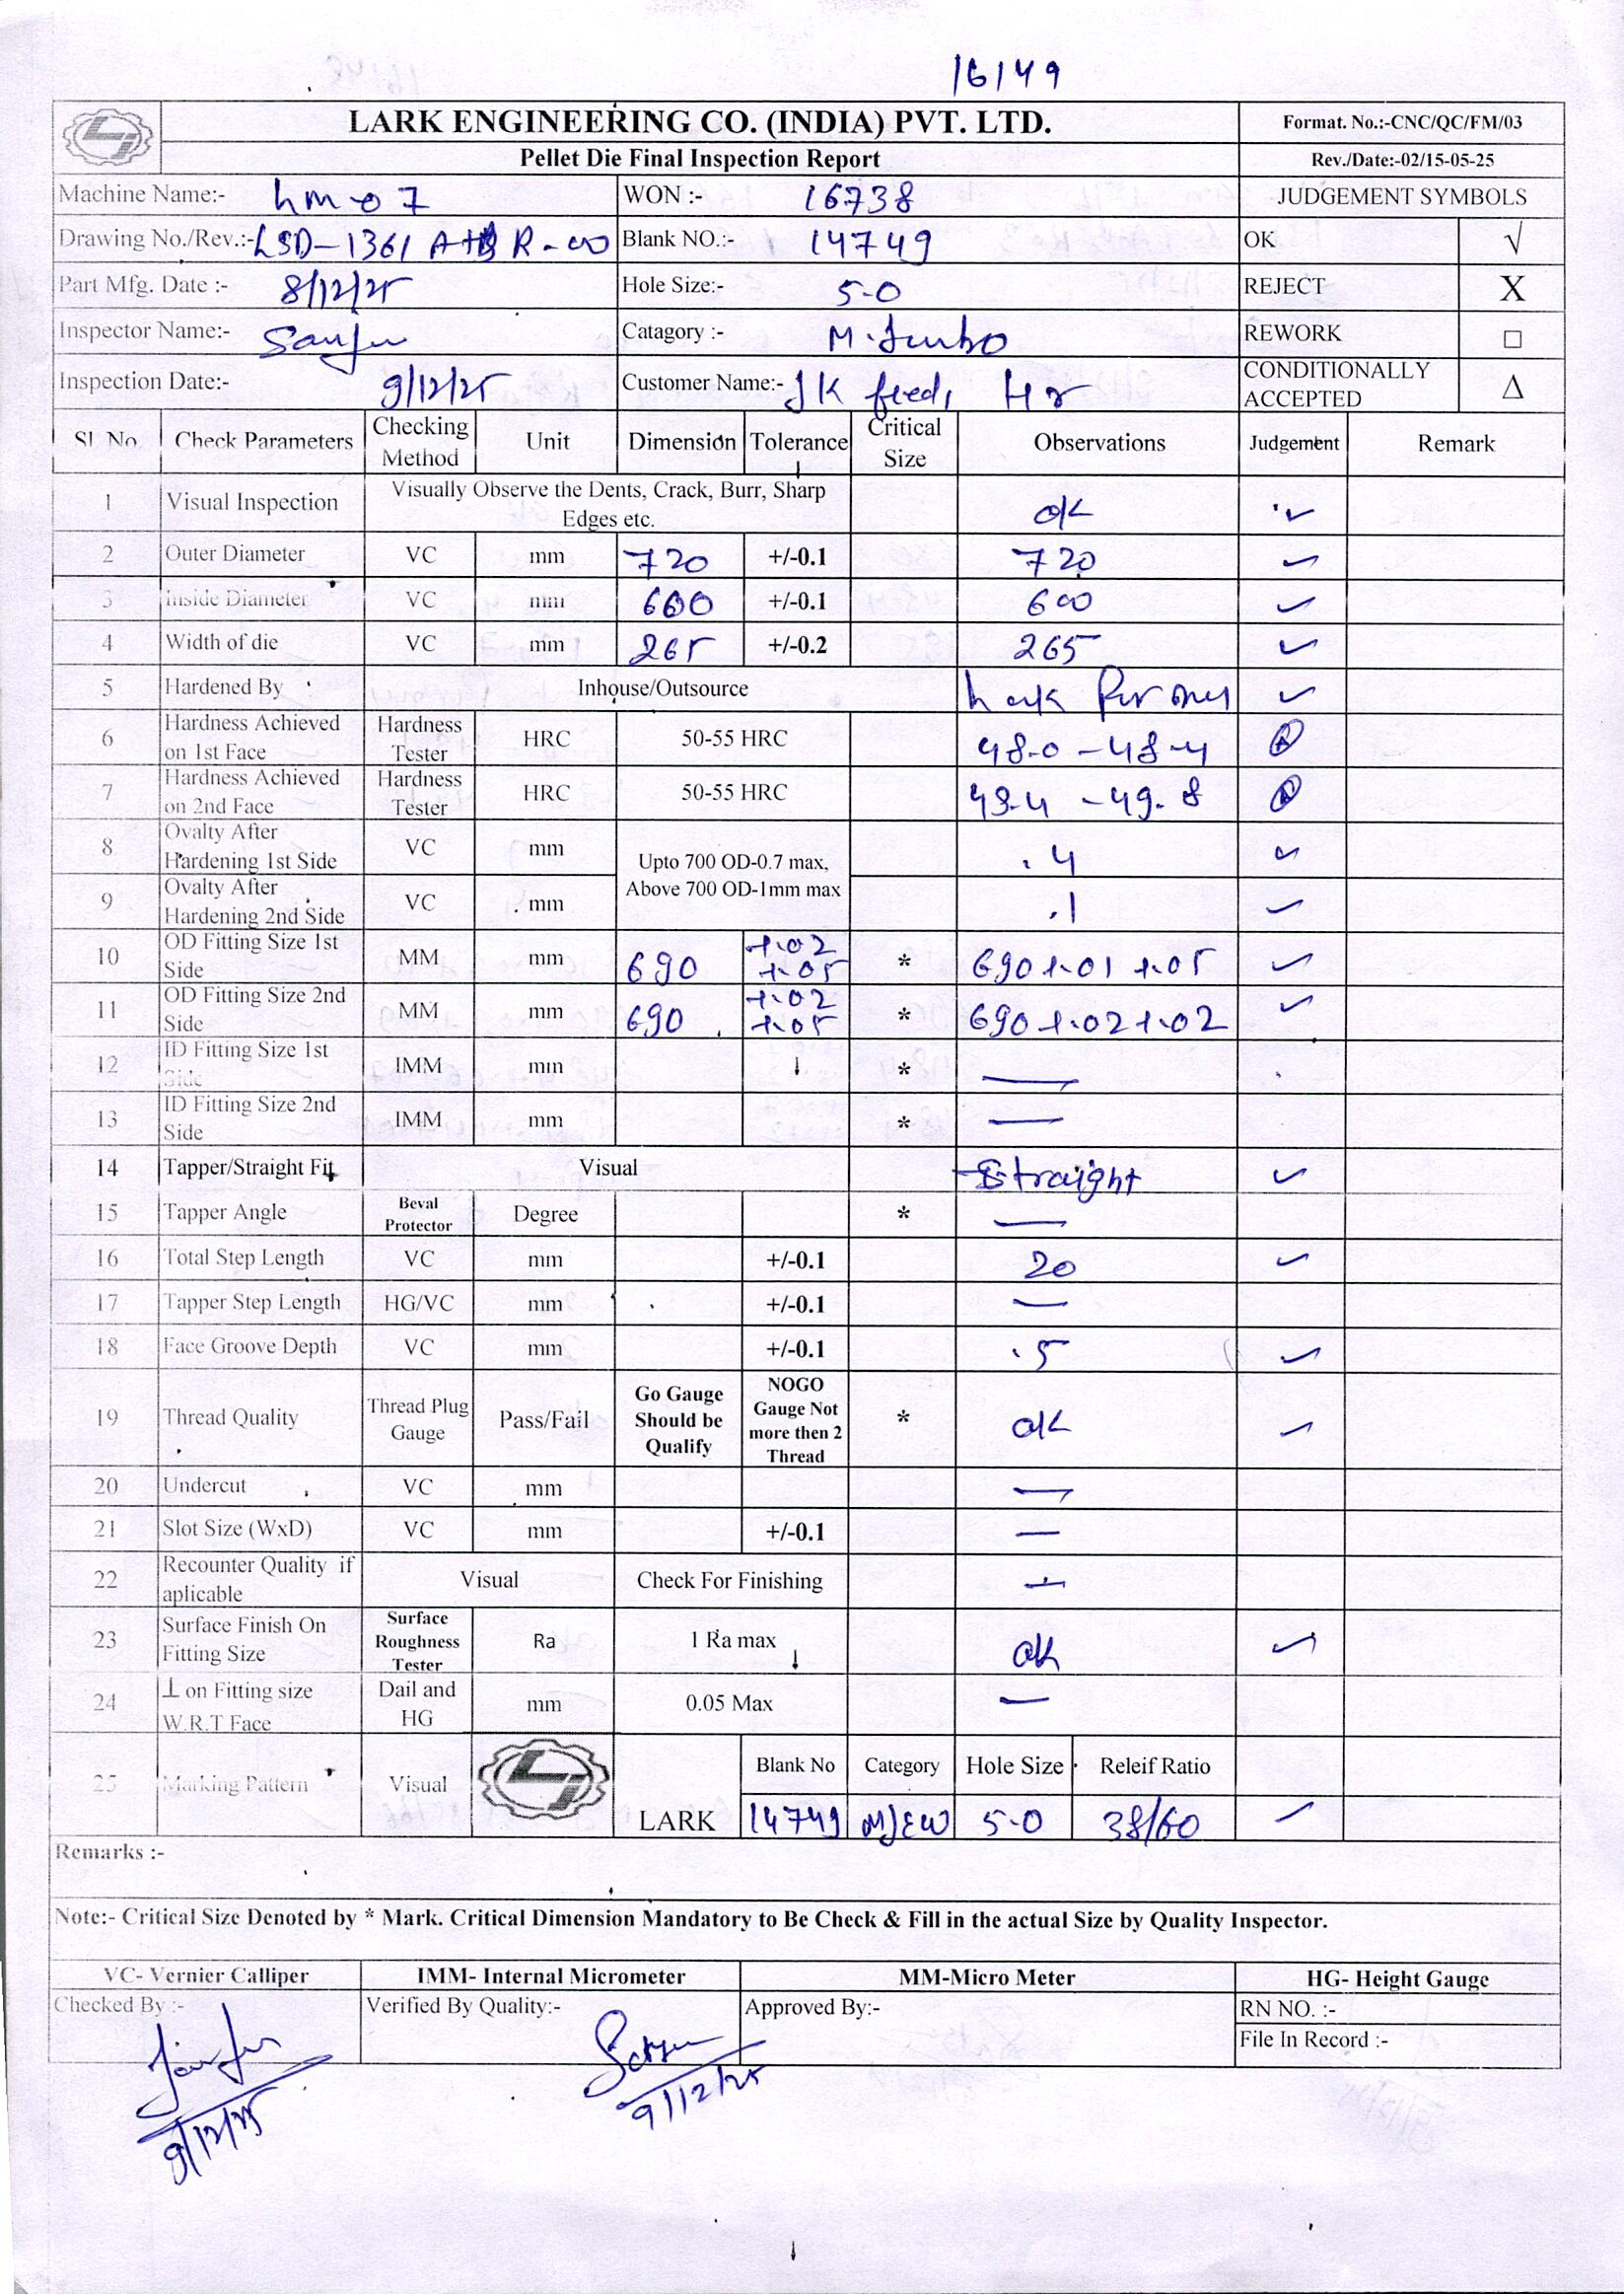 16149
LARK ENGINEERING CO. (INDIA) PVT. LTD.
Format. No.:-CNC/QC/FM/03
Pellet Die Final Inspection Report
Rev./Date:-02/15-05-25
Machine Name:- hm-07 WON :- 16738 JUDGEMENT SYMBOLS
Drawing No./Rev.:- LSD-1361 A+B R-00 Blank NO.:- 14749 OK √
Part Mfg. Date :- 8/12/25 Hole Size:- 5-0 REJECT X
Inspector Name:- Catagory :- M.Jumbo REWORK □
Inspection Date:- 9/12/25 Customer Name:- JK feed, Hr CONDITIONALLY ACCEPTED Δ
Sl. No. Check Parameters Checking Method Unit Dimension Tolerance Critical Size Observations Judgement Remark
1 Visual Inspection Visually Observe the Dents, Crack, Burr, Sharp Edges etc. ok ✓
2 Outer Diameter VC mm 720 +/-0.1 720 ✓
3 Inside Diameter VC mm 600 +/-0.1 600 ✓
4 Width of die VC mm 265 +/-0.2 265 ✓
5 Hardened By Inhouse/Outsource ✓
6 Hardness Achieved on 1st Face Hardness Tester HRC 50-55 HRC 48-0 - 48-4
7 Hardness Achieved on 2nd Face Hardness Tester HRC 50-55 HRC - 49.8
8 Ovalty After Hardening 1st Side VC mm Upto 700 OD-0.7 max, Above 700 OD-1mm max .4 ✓
9 Ovalty After Hardening 2nd Side VC mm .1 ✓
10 OD Fitting Size 1st Side MM mm 690 +.02 +.05 * 690 +.01 +.05 ✓
11 OD Fitting Size 2nd Side MM mm 690 +.02 +.05 * 690 +.02 +.02 ✓
12 ID Fitting Size 1st Side IMM mm * —
13 ID Fitting Size 2nd Side IMM mm * —
14 Tapper/Straight Fit Visual Straight ✓
15 Tapper Angle Beval Protector Degree * —
16 Total Step Length VC mm +/-0.1 20 ✓
17 Tapper Step Length HG/VC mm +/-0.1 —
18 Face Groove Depth VC mm +/-0.1 .5 ✓
19 Thread Quality Thread Plug Gauge Pass/Fail Go Gauge Should be Qualify NOGO Gauge Not more then 2 Thread * ok ✓
20 Undercut VC mm —
21 Slot Size (WxD) VC mm +/-0.1 —
22 Recounter Quality if aplicable Visual Check For Finishing —
23 Surface Finish On Fitting Size Surface Roughness Tester Ra 1 Ra max ok ✓
24 ⊥ on Fitting size W.R.T Face Dail and HG mm 0.05 Max —
25 Marking Pattern Visual LARK Blank No Category Hole Size Releif Ratio
14749 5-0 38/60 ✓
Remarks :-
Note:- Critical Size Denoted by * Mark. Critical Dimension Mandatory to Be Check & Fill in the actual Size by Quality Inspector.
VC- Vernier Calliper IMM- Internal Micrometer MM-Micro Meter HG- Height Gauge
Checked By :- Verified By Quality:- Approved By:- RN NO. :-
File In Record :-
9/12/25
9/12/25